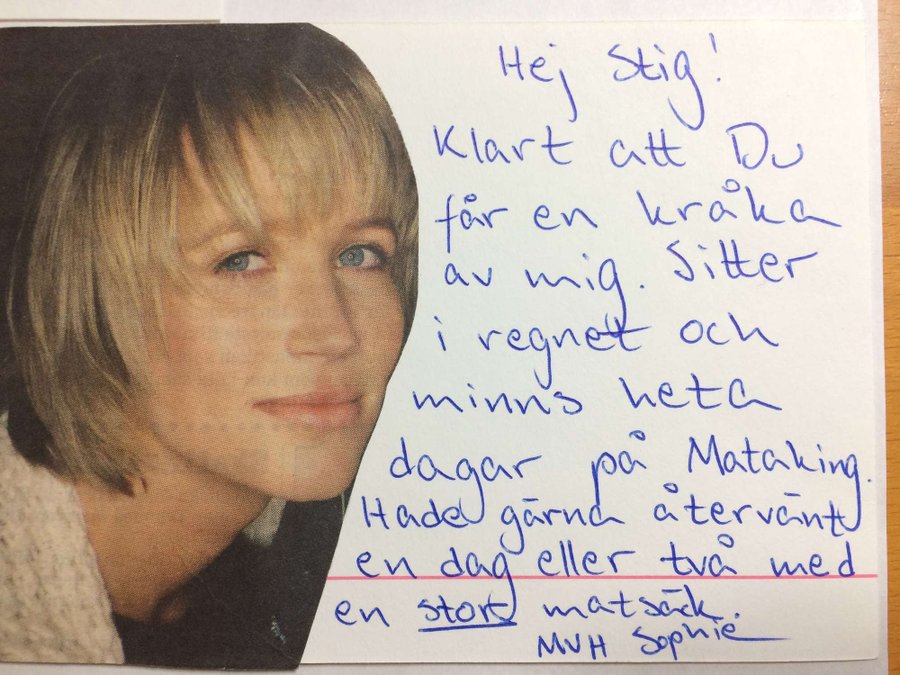 Hej Stig!
Klart att Du
får en kråka
av mig. Sitter
i regnet och
minns heta
dagar på Mataking.
Hade gärna återvänt
en dag eller två med
en stort matsäck.
MVH Sophie